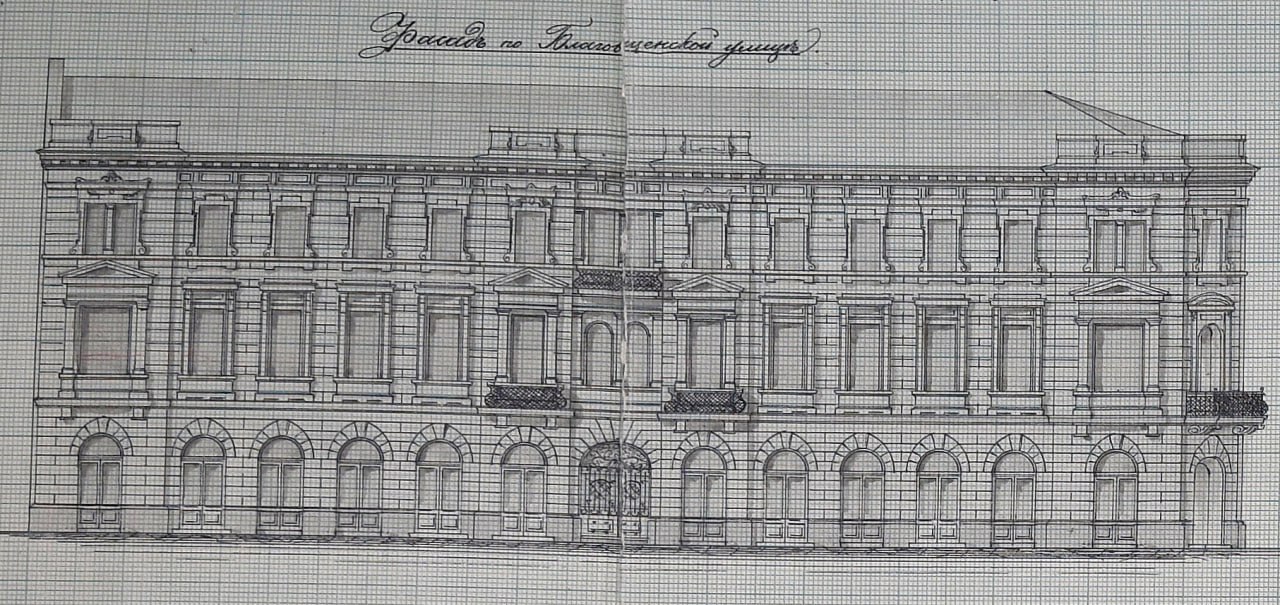 Фасадъ по Благовѣщенской улицѣ.